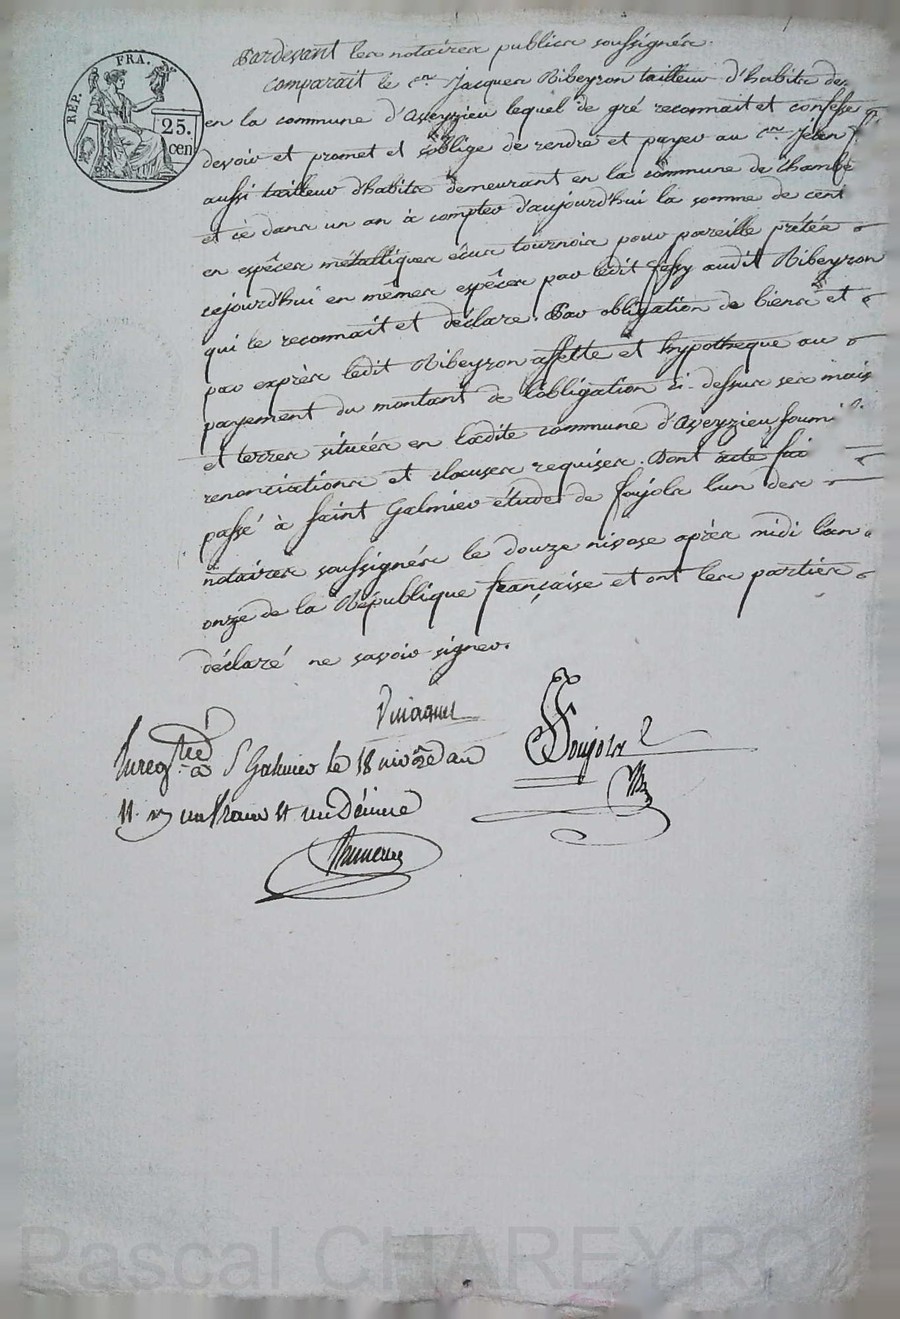 REP. FRA.
25.
cen
Pardevant les notaires publics soussignés.
comparait le c.en Jacques Ribeyron tailleur d'habits de
en la commune d'Aveyzieu lequel de gré reconnait et confesse
devoir et promet et s'oblige de rendre et payer au c.en Jean
aussi tailleur d'habits demeurant en la commune de Chambe
et ce dans un an à compter d'aujourd'hui la somme de cent
en espêces métalliques écus tournois pour pareille prétée
cejourd'hui en mêmes espêces par ledit fessy audit Ribeyron
qui le reconnait et déclare. Par obligation de biens et
par exprès ledit Ribeyron affette et hypotheque au
payement du montant de l'obligation ci-dessus ses mais
et terres situées en ladite commune d'Aveyzieu soumi
renonciations et clauses requises. Dont acte fai
passé à saint Galmier étude de foujols l'un des
notaires soussignés le douze nivose après midi l'an
onze de la République française et ont les parties
déclaré ne savoir signer.
foujols
Enreg.tré à S Galmier le 18 nivôse an
11. r un franc et un Décime
Pascal CHAREYRO